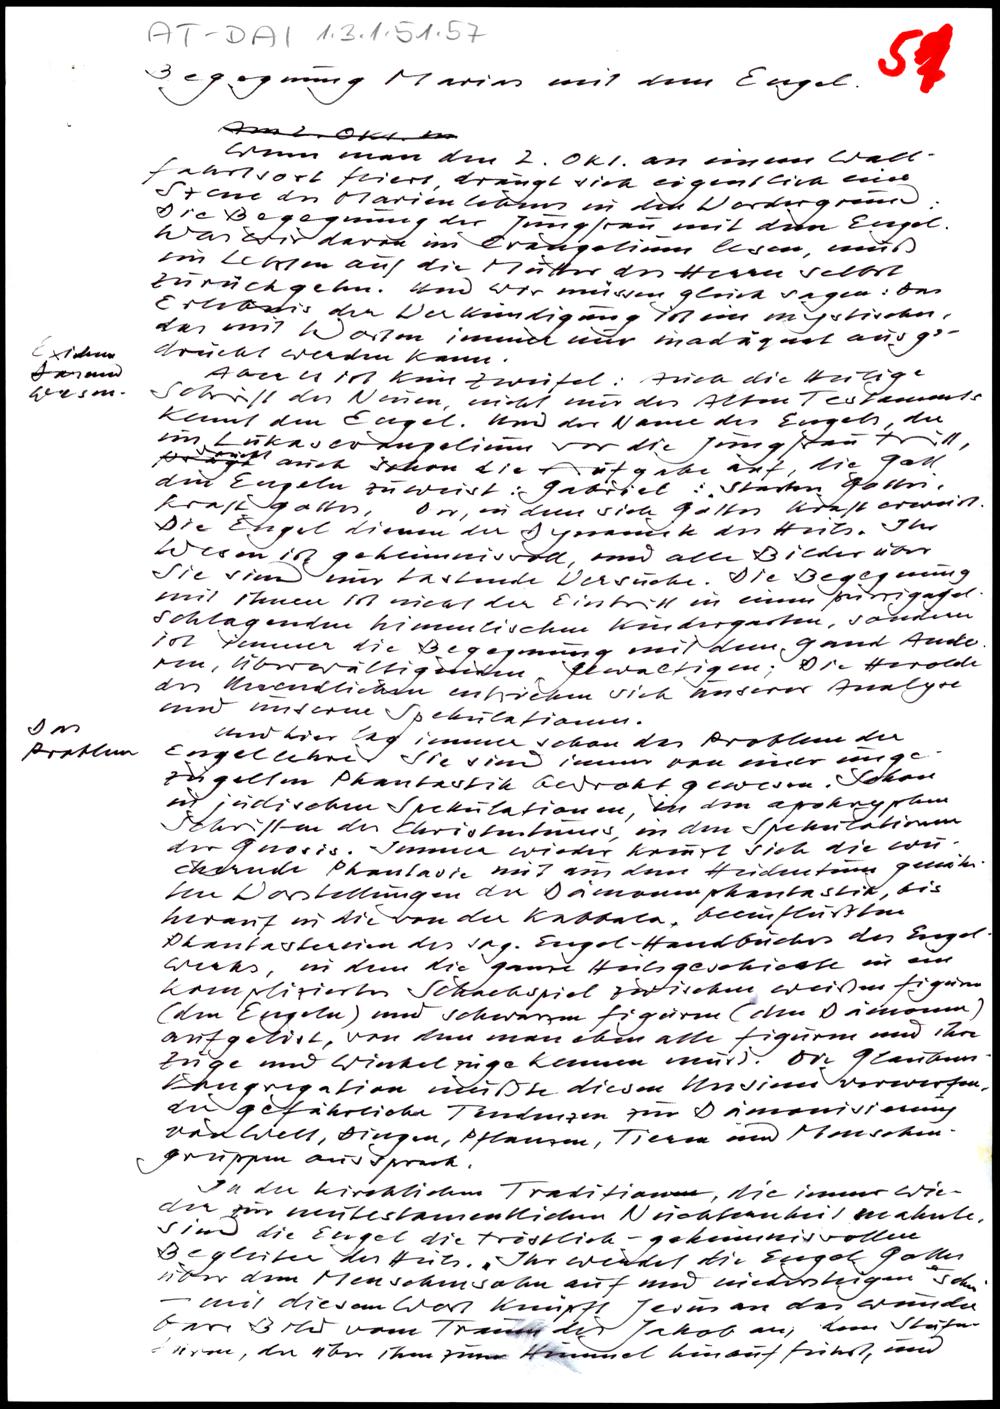 AT-DAI 1.3.1.51.57
57
Begegnung Marias mit dem Engel.
Am 2. Okt. in
Wenn man den 2. Okt. an einem Wall-
fahrtsort feiert, drängt sich eigentlich eine
Szene des Marienlebens in den Vordergrund:
Die Begegnung der Jungfrau mit dem Engel.
Was wir davon im Evangelium lesen, muß
im Letzten auf die Mutter des Herrn selbst
zurückgehn. Und wir müssen gleich sagen: Das
Erlebnis der Verkündigung ist ein mystisches,
das mit Worten immer nur inadäquat ausge-
drückt werden kann.
Existenz
und
Wesen.
Aber es ist kein Zweifel: Auch die Heilige
Schrift des Neuen, nicht nur des Alten Testaments
kennt den Engel. Und der Name des Engels, der
im Lukasevangelium vor die Jungfrau tritt,
auch schon die Aufgabe auf, die Gott
den Engeln zuweist: Gabriel: Starker Gottes,
Kraft Gottes, Der, in dem sich Gottes Kraft erweist.
Die Engel dienen der Dynamik des Heils. Ihr
Wesen ist geheimnisvoll, und alle Bilder über
Sie sind nur tastende Versuche. Die Begegnung
mit ihnen ist nicht der Eintritt in einen
schlagenden himmlischen Kindergarten, sondern
ist immer die Begegnung mit dem ganz Ande-
ren, Überwältigenden, Gewaltigen; Die Herolde
des Unendlichen entziehen sich unserer Analyse
und unseren Spekulationen.
Das
Problem
Und hier lag immer schon das Problem der
Engellehre. Sie sind immer von einer unge-
zügelten Phantastik bedroht gewesen. Schon
in jüdischen Spekulationen, in den apokryphen
Schriften des Christentums, in den Spekulationen
der Gnosis. Immer wieder kreuzt sich die wu-
chernde Phantasie mit aus dem Heidentum genähr-
ten Vorstellungen der Dämonenphantastik, bis
herauf in die von der Kabbala beeinflußten
Phantastereien des sog. Engel-Handbuches des Engel-
werks, in dem die ganze Heilsgeschichte in ein
kompliziertes Schachspiel zwischen weißen Figuren
(den Engeln) und schwarzen Figuren (den Dämonen)
aufgelöst, von dem man eben alle Figuren und ihre
Züge und Winkelzüge kennen muß. Die Glaubens-
kongregation mußte diesen Unsinn verwerfen,
der gefährliche Tendenzen zur Dämonisierung
von Welt, Dingen, Pflanzen, Tieren und Menschen-
gruppen aussprach.
In der kirchlichen Tradition, die immer wie-
der zur neutestamentlichen Nüchternheit mahnte,
sind die Engel die tröstlich-geheimnisvollen
Begleiter des Heils. "Ihr werdet die Engel Gottes
über dem Menschensohn auf und niedersteigen sehn"
– mit diesem Wort knüpft Jesus an das wunder-
bare Bild vom Traum des Jakob an, dem
der über ihm zum Himmel hinauf führt, und